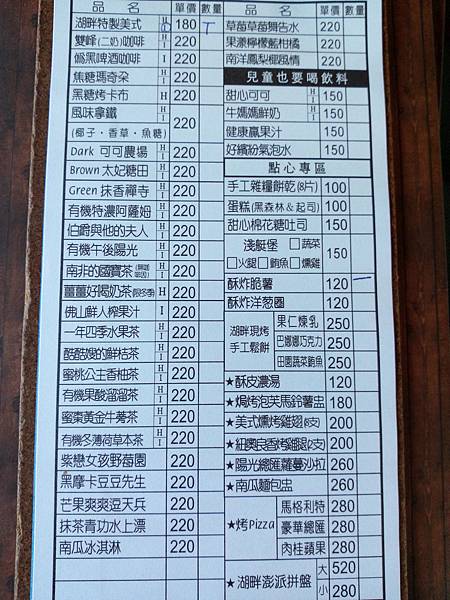 品 名 單價 數量
湖畔特製美式 H 180 T
雙峰(二奶)咖啡 H I 220
僞黑啤酒咖啡 I 220
焦糖瑪奇朵 H I 220
黑糖烤卡布 H 220
風味拿鐵 H I 220
(椰子・香草・魚糖)
Dark 可可農場 H I 220
Brown 太妃糖田 H I 220
Green 抹香禪寺 H I 220
有機特濃阿薩姆 H I 220
伯爵與他的夫人 H I 220
有機午後陽光 H I 220
南非的國寶茶 H I 220
薑薑好喝奶茶(限冬季) H 220
佛山鮮人榨果汁 I 220
一年四季水果茶 H I 220
酷酷嫂的鮮桔茶 H I 220
蜜桃公主香柚茶 H I 220
有機果酸溜溜茶 H I 220
蜜棗黃金牛蒡茶 H I 220
有機冬薄荷草本茶 H I 220
紫戀女孩野莓園 220
黑摩卡豆豆先生 220
芒果爽爽逗天兵 220
抹茶青功水上漂 220
南瓜冰淇淋 220
品 名 單價 數量
草莓草莓舞告水 220
果漾檸檬藍柑橘 220
南洋鳳梨椰風情 220
兒童也要喝飲料
甜心可可 H I 150
牛媽媽鮮奶 H I 150
健康贏果汁 150
好繽紛氣泡水 150
點心專區
手工雜糧餅乾(8片) 100
蛋糕(黑森林&起司) 100
甜心棉花糖吐司 220
淺艇堡 □蔬菜
□火腿 □鮪魚 □燻雞 150
酥炸脆薯 120 一
酥炸洋葱圈 120
湖畔現烤手工鬆餅
果仁煉乳 250
巴娜娜巧克力 250
田園蔬菜鮪魚 250
★酥皮濃湯 120
★焗烤泡芙馬鈴薯盅 180
★美式燻烤雞翅(6支) 200
★紐奧良香烤雞腿(2支) 200
★陽光總匯蘿蔓沙拉 260
★南瓜麵包盅 260
★烤Pizza
馬格利特 280
豪華總匯 280
肉桂蘋果 280
★湖畔澎派拼盤 大 520
小 280